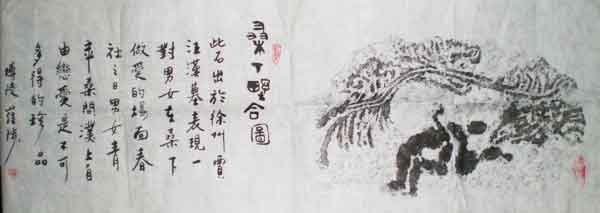 桑下野合圖
此石出於徐州賈
汪漢墓表現一
對男女在桑下
做愛的場面春
社之日男女青
年桑間濮上自
由戀愛是不可
多得的珍品